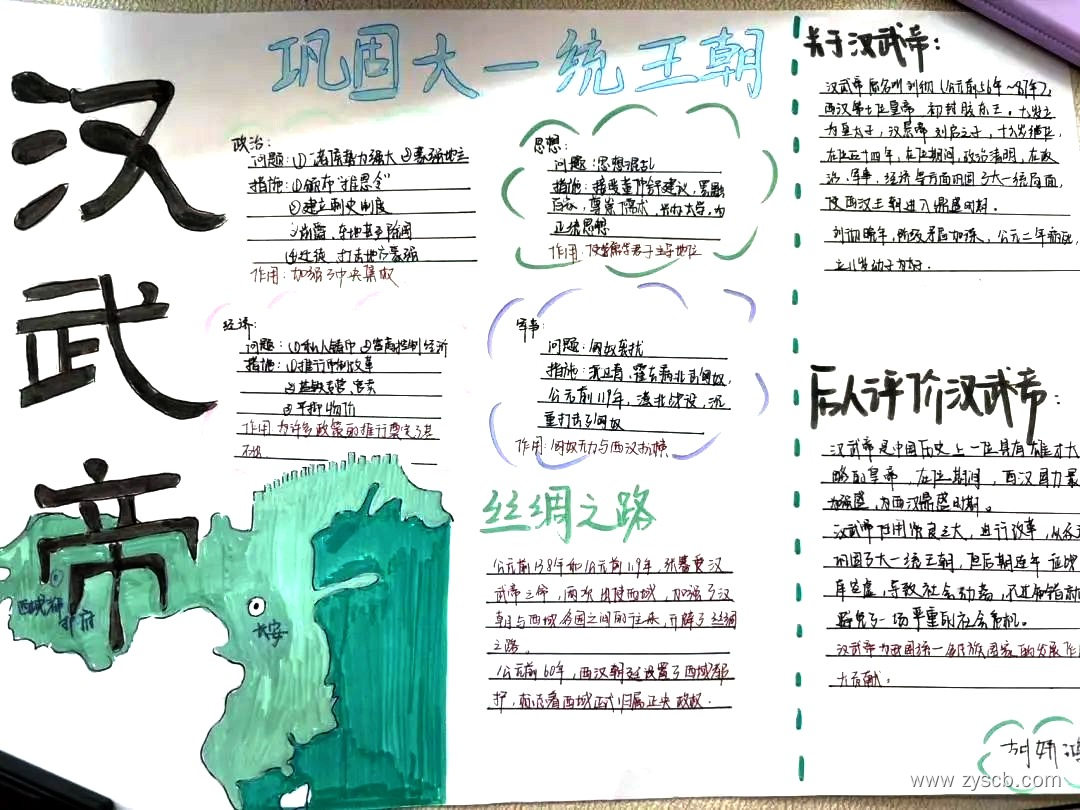 汉武帝
巩固大一统王朝
政治:
问题:①诸侯势力强大 ②豪强地主
措施:①颁布"推恩令"
②建立刺史制度
③削爵、夺地甚至除国
④迁徙、打击地方豪强
作用:加强了中央集权
思想:
问题:思想混乱
措施:接受董仲舒建议,罢黜
百家,尊崇儒术,兴办太学,为
正统思想
作用:使儒学居于主导地位
经济:
问题:①私人铸币 ②富商控制经济
措施:①推行币制改革
②盐铁专营、官卖
③平抑物价
作用:为许多政策的推行奠定了基
军事:
问题:匈奴袭扰
措施:派卫青、霍去病北击匈奴,
公元前119年,漠北决战,沉
重打击了匈奴
作用:匈奴无力与西汉抗衡
丝绸之路
公元前138年和公元前119年,张骞受汉
武帝之命,两次出使西域,加强了汉
朝与西域各国之间的往来,开辟了丝绸
之路。
公元前60年,西汉朝廷设置了西域都
护,标志着西域正式归属中央政权.
西域都
护府
长安
关于汉武帝:
汉武帝原名叫刘彻(公元前156年~87年),
西汉第七位皇帝,初封胶东王,七岁立
为皇太子,汉景帝刘启之子,十六岁继位,
在位五十四年,在位期间,政治清明,在政
治、军事、经济等方面巩固了大一统局面,
使西汉王朝进入鼎盛时期.
刘彻晚年,阶级矛盾加深,公元二年病逝,
立八岁幼子为太子.
后人评价汉武帝:
汉武帝是中国历史上一位具有雄才大
略的皇帝,在位期间,西汉国力最
为强盛,为西汉鼎盛时期。
汉武帝任用贤良之大,进行改革,从各方
巩固了大一统王朝,但后期连年征战
库空虚,导致社会动荡,
避免了一场严重的社会危机。
汉武帝为我国统一多民族国家的发展作
大贡献.
胡妍
www.zyscb.com